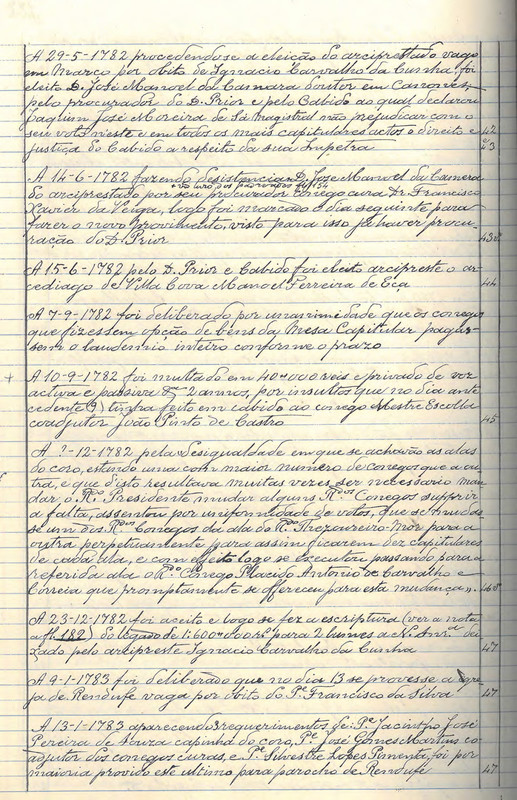 A 29-5-1782 procedendo-se a eleição do arciprestado vago
em Março por obito de Ignacio Carvalho da Cunha foi
eleito D. José Manoel da Camara doutor em Canones,
pelo procurador do D. Prior e pelo Cabido ao qual declarou
Joaquim José Moreira de Sá Magistral não prejudicar com o
seu voto neste e em todos os mais capitulares actos o direito e 42
justiça do Cabido a respeito da sua Impetra 43
A 14-6-1782 fazendo desistencia D. Jose Manoel da Camera
no livro das
do arciprestado por seu procurador conego cura Dr. Francisco
Xavier da Veiga, logo foi marcado o dia seguinte para
fazer o novo provimento, visto para isso já haver procu-
ração do D. Prior 43
A 15-6-1782 pelo D. Prior e Cabido foi eleito arcipreste o ar-
cediago de Villa Cova Manoel Ferreira de Eça 44
A 7-9-1782 foi deliberado por unanimidade que os conegos
que fizessem opção de bens da Mesa Capitular pagas-
sem o laudemio inteiro conforme o prazo
+ A 10-9-1782 foi multado em 40#000 reis e privado de voz
activa e passiva 2 annos, por insultos que no dia ante
cedente (9) tinha feito em cabido ao conego Mestre Escolla
coadjutor João Pinto de Castro 45
A ?-12-1782 pela desigualdade em que se achavão as alas
do coro, estando uma com maior numero de conegos que a ou-
tra, e que d'isto resultava muitas vezes ser necessario man-
dar o R.do Presidente mudar alguns R.dos Conegos supprir
a falta, assentou por uniformidade de votos, que se mudas-
se um dos R.dos Conegos da ala do R.do Thezoureiro-Mor para a
outra perpetuamente para assim ficarem dez capitulares
de cada ala, e com effeito logo se executou passando para a
referida ala o R.do Conego Placido Antonio de Carvalho e
Correia que promptamente se offereceu para esta mudança". 46
A 23-12-1782 foi aceito e logo se fez a escriptura (ver a nota
a fl. 182) do legado de 1:600#000 rs. para 2 lumes a N. Snr.a dei-
xado pelo arcipreste Ignacio Carvalho da Cunha 47
A 9-1-1783 foi deliberado que no dia 13 se provesse a Igre
ja de Rendufe vaga por obito do P.e Francisco da Silva 47
A 13-1-1783 aparecendo 3 requerimentos, de: P.e Jacintho José
Pereira de Souza capinha do coro, P.e José Gomes Martins co-
adjutor dos conegos curas, e P.e Silvestre Lopes Pimenta, foi por
maioria provido este ultimo para parocho de Rendufe 47